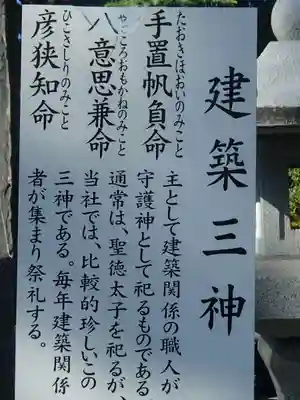 建築三神
たおきほおいのみこと
手置帆負命
やごころおもかねのみこと
八意思兼命
ひこさしりのみこと
彦狭知命
主として建築関係の職人が
守護神として祀るものである
通常は、聖徳太子を祀るが、
当社では、比較的珍しいこの
三神である。毎年建築関係
者が集まり祭礼する。